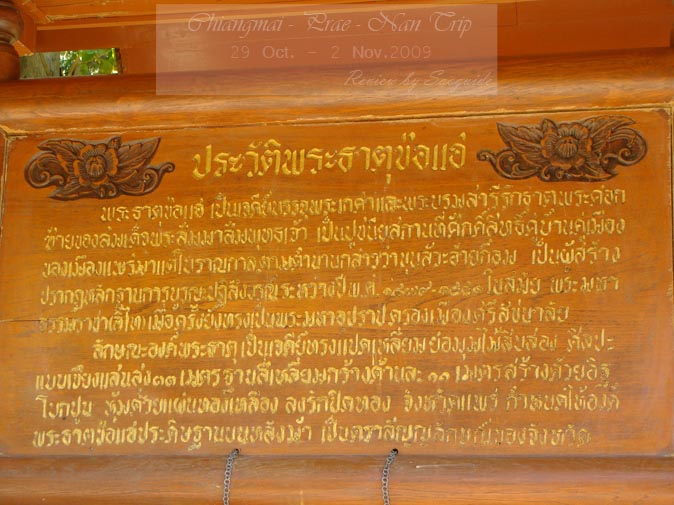 Chiangmai - Prae - Nan Trip
29 Oct. - 2 Nov.2009
Review by
ประวัติพระธาตุช่อแฮ่
พระธาตุช่อแฮ่ เป็นเจดีย์บรรจุพระเกศาและพระบรมสารีริกธาตุพระศอก
ซ้ายของสมเด็จพระสัมมาสัมพุทธเจ้า เป็นปูชนียสถานที่ศักดิ์สิทธิ์คู่บ้านคู่เมือง
ของเมืองแพร่มาแต่โบราณกาล ตามตำนานกล่าวว่าขุนลัวะอ้ายก้อม เป็นผู้สร้าง
ปรากฏหลักฐานการบูรณะปฏิสังขรณ์ระหว่างปี พ.ศ. ในสมัย พระมหา
ธรรมราชาลิไท เมื่อครั้งยังทรงเป็นพระมหาอุปราชครองเมืองศรีสัชนาลัย
ลักษณะองค์พระธาตุ เป็นเจดีย์ทรงแปดเหลี่ยม ย่อมุมไม้สิบสอง ศิลปะ
แบบเชียงแสนสูง ๓๓ เมตร ฐานสี่เหลี่ยมกว้างด้านละ ๑๑ เมตร สร้างด้วยอิฐ
โบกปูน หุ้มด้วยแผ่นทองเหลือง ลงรักปิดทอง จังหวัดแพร่ กำหนดให้องค์
พระธาตุช่อแฮ่ประดิษฐานบนหลังม้า เป็นตราสัญญลักษณ์ของจังหวัด